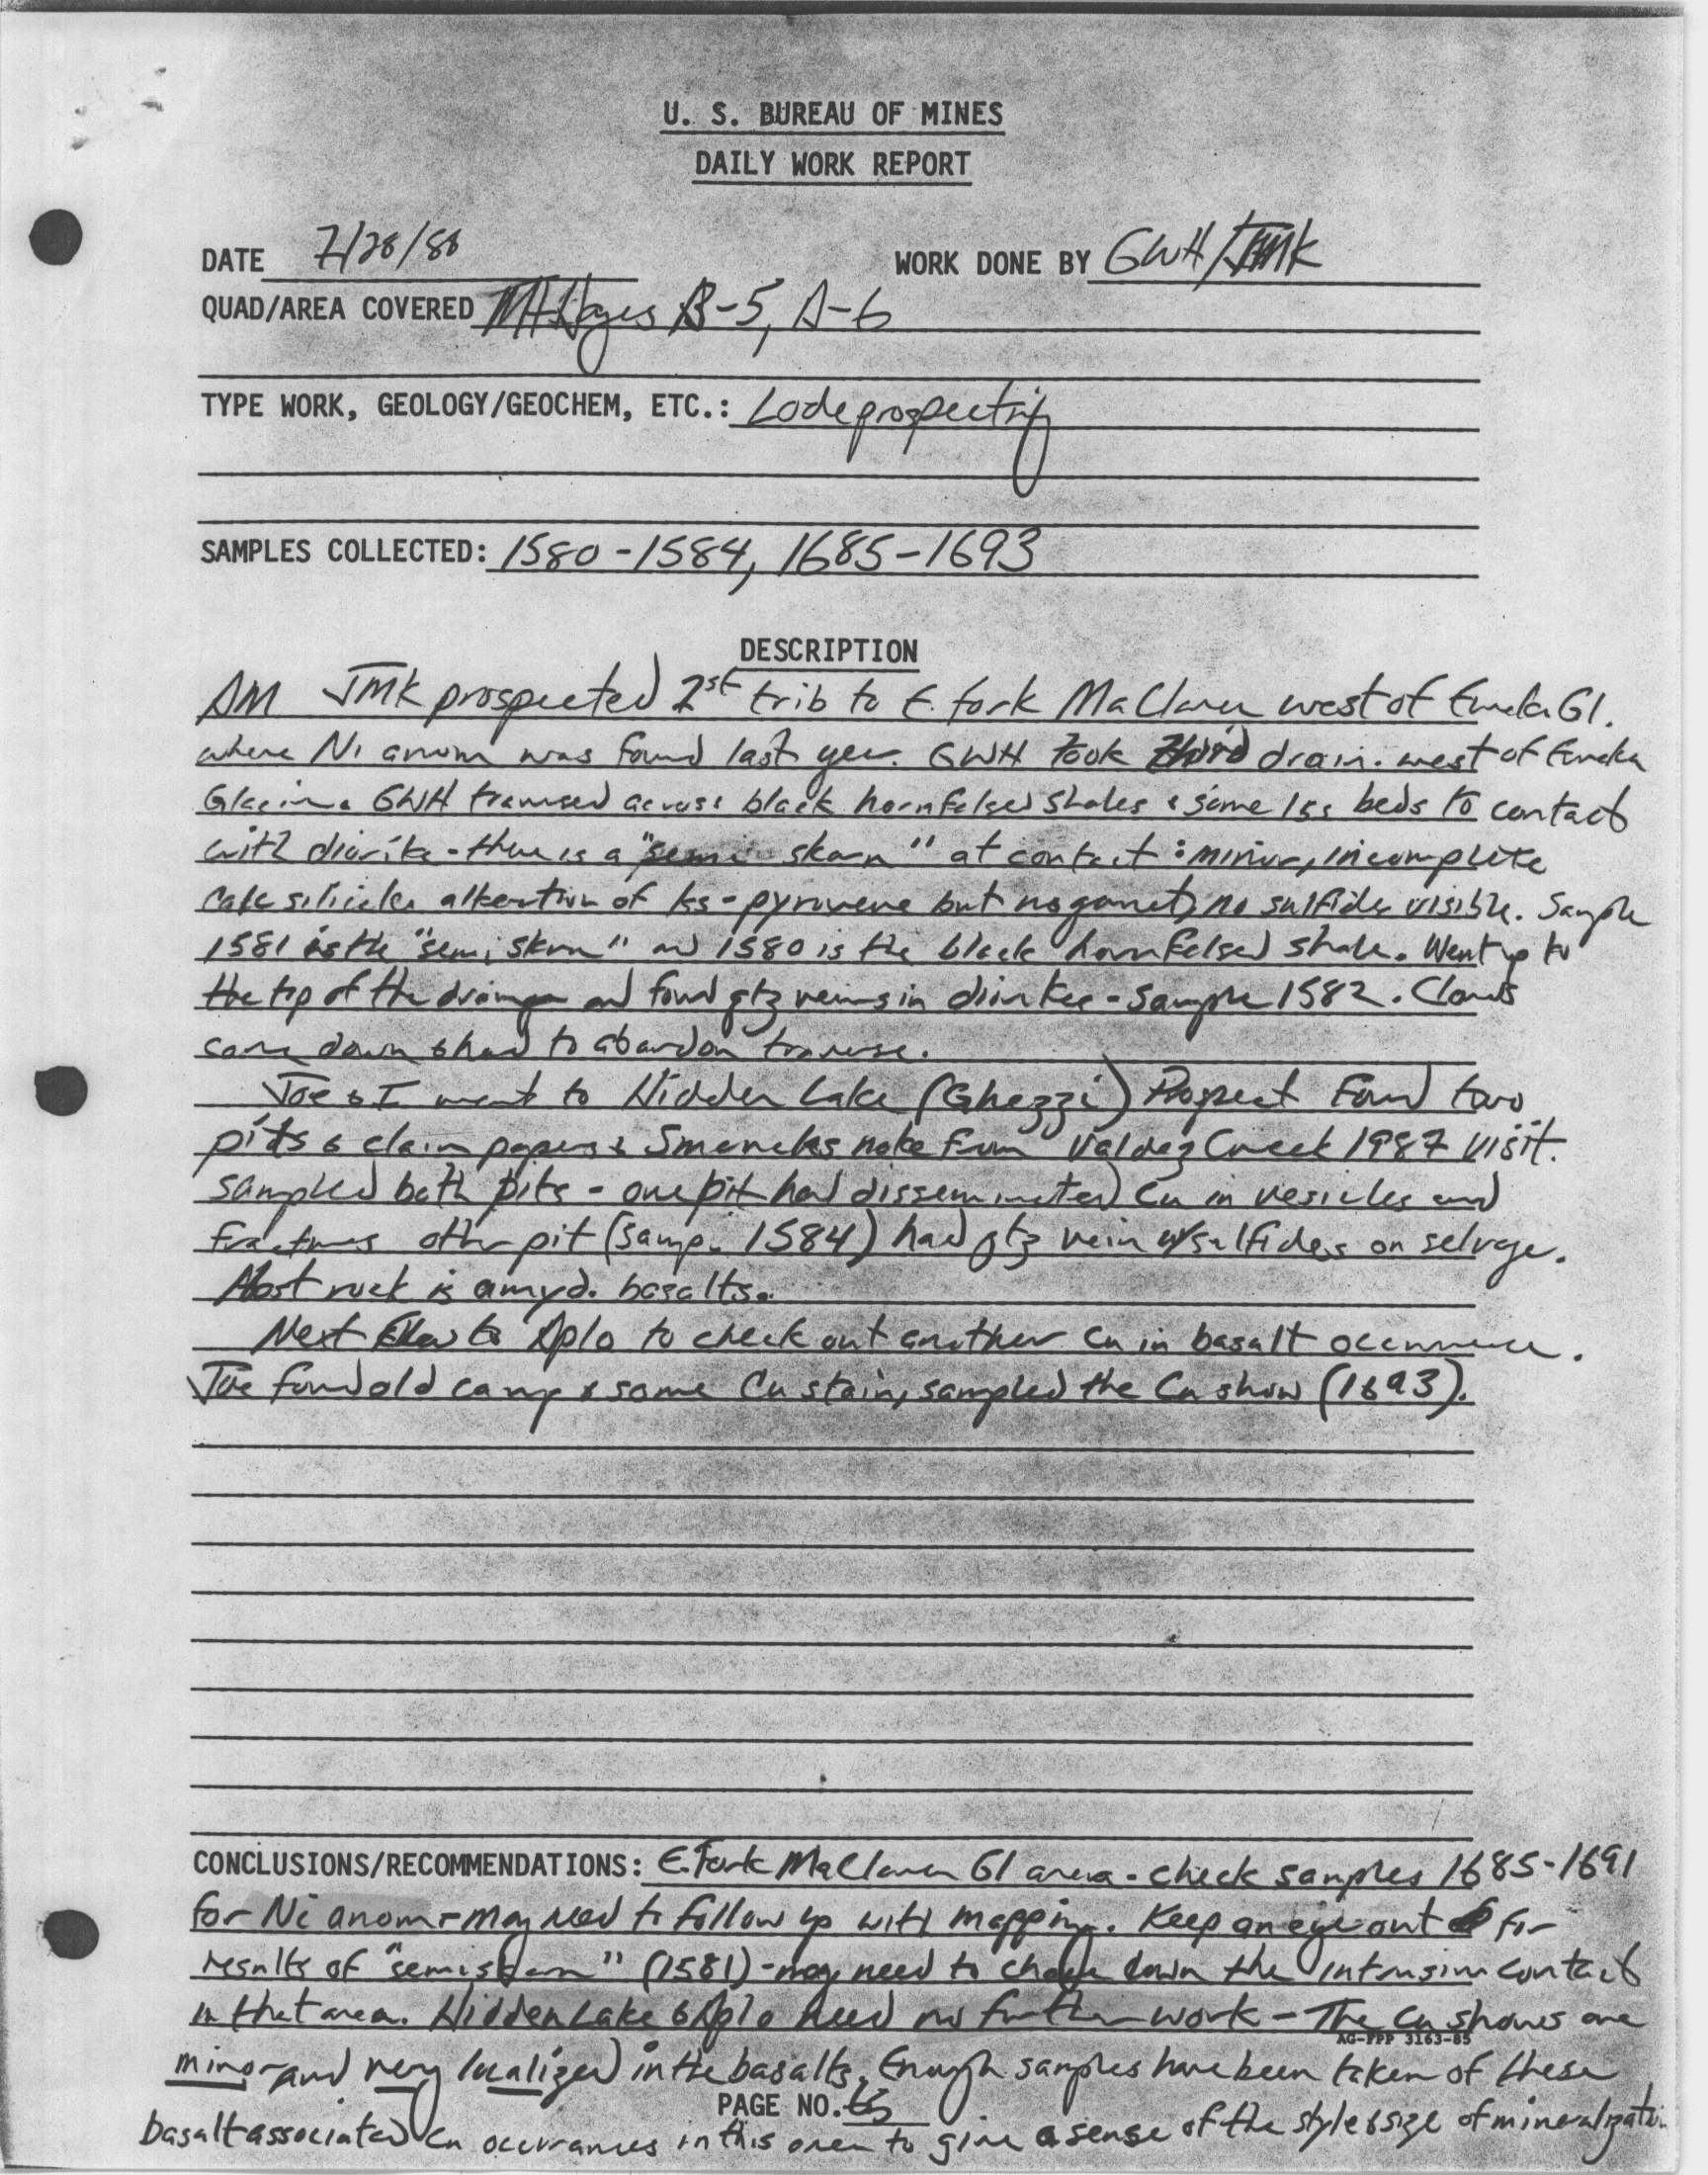 U. S. BUREAU OF MINES
DAILY WORK REPORT
DATE 7/28/88 WORK DONE BY GWH/JMK
QUAD/AREA COVERED Mt Hayes B-5, A-6
TYPE WORK, GEOLOGY/GEOCHEM, ETC.: Lode prospecting
SAMPLES COLLECTED: 1580-1584, 1685-1693
DESCRIPTION
AM JMK prospected 2st trib to E. fork Maclaren west of Eureka Gl.
where Ni anom was found last year. GWH took third drain. west of Eureka
Glacier. GWH traversed across black hornfelsed shales & some lss beds to contact
with diorite - there is a "semi skarn" at contact: minor, incomplete
calc silicate alteration of ls - pyroxene but no garnet, no sulfides visible. Sample
1581 is the "semi skarn" and 1580 is the black hornfelsed shale. Went up to
the top of the drainage and found qtz veins in diorite - Sample 1582. Clouds
came down & had to abandon traverse.
Joe & I went to Hidden Lake (Ghezzi) Prospect Found two
pits & claim papers & note from Valdez Creek 1987 visit.
sampled both pits - one pit had disseminated Cu in vesicles and
fractures other pit (samp. 1584) had qtz vein w/sulfides on selvage.
Host rock is amyd. basalts.
Next flew to Aplo to check out another Cu in basalt occurrence.
Joe found old camp & some Cu stain, sampled the Cu show (1693).
CONCLUSIONS/RECOMMENDATIONS: E. Fork Maclaren Gl area - check samples 1685-1691
for Ni anom - may need to follow up with mapping. Keep an eye out for
results of "semiskarn" (1581) - may need to chase down the intrusive contact
in that area. Hidden Lake & Aplo need no further work - The Cu shows are
AG-FPP 3163-85
minor and very localized in the basalts. Enough samples have been taken of these
PAGE NO.
basalt associated Cu occurrances in this area to give a sense of the style & size of mineralization